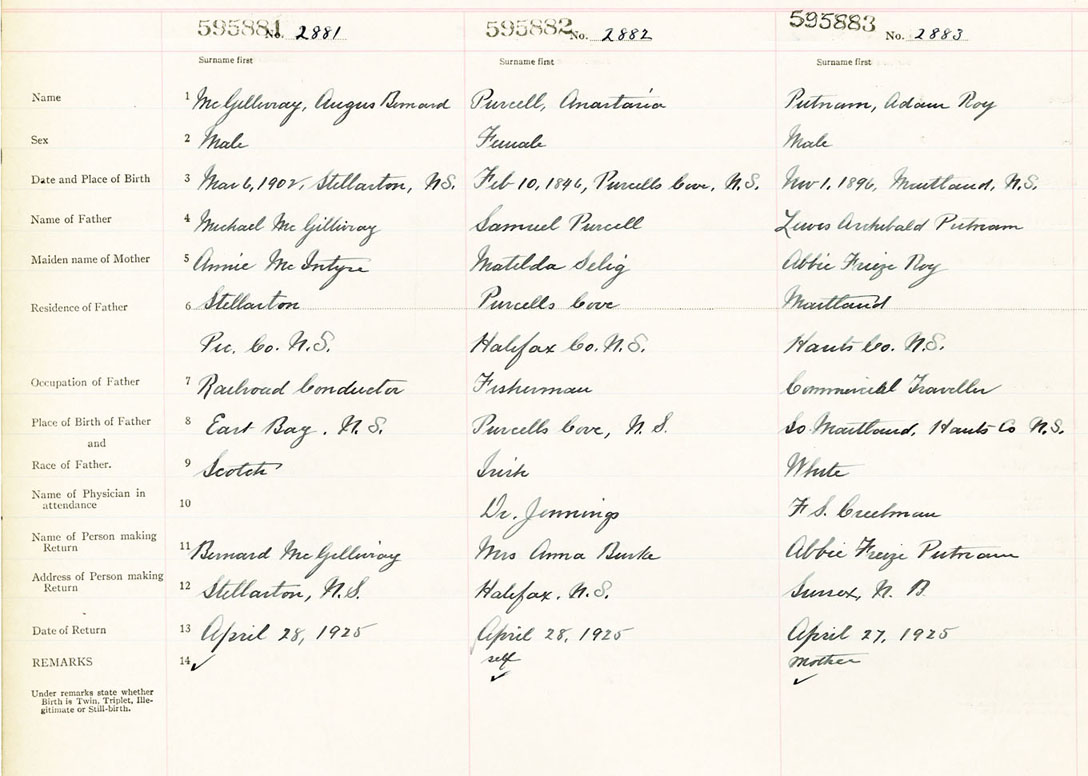 595881 No. 2881 595882 No. 2882 595883 No. 2883
Surname first Surname first Surname first
Name 1 McGillivray, Angus Bernard Purcell, Anastasia Putnam, Adam Roy
Sex 2 Male Female Male
Date and Place of Birth 3 Mar 6, 1902, Stellarton, N.S. Feb 10, 1846, Purcells Cove, N.S. Nov 1, 1896, Maitland, N.S.
Name of Father 4 Michael McGillivray Samuel Purcell Lewis Archibald Putnam
Maiden name of Mother 5 Annie McIntyre Matilda Selig Abbie Frieze Roy
Residence of Father 6 Stellarton Purcells Cove Maitland
Pic. Co. N.S. Halifax Co. N.S. Hants Co. N.S.
Occupation of Father 7 Railroad Conductor Fisherman Commercial Traveller
Place of Birth of Father 8 East Bay, N.S. Purcells Cove, N.S. So. Maitland, Hants Co N.S.
and
Race of Father. 9 Scotch Irish White
Name of Physician in
attendance 10 Dr. Jennings F S. Creelman
Name of Person making
Return 11 Bernard McGillivray Mrs Anna Burke Abbie Frieze Putnam
Address of Person making
Return 12 Stellarton, N.S. Halifax, N.S. Sussex, N. B.
Date of Return 13 April 28, 1925 April 28, 1925 April 27, 1925
REMARKS 14 ✓ self ✓ mother ✓
Under remarks state whether
Birth is Twin, Triplet, Ille-
gitimate or Still-birth.